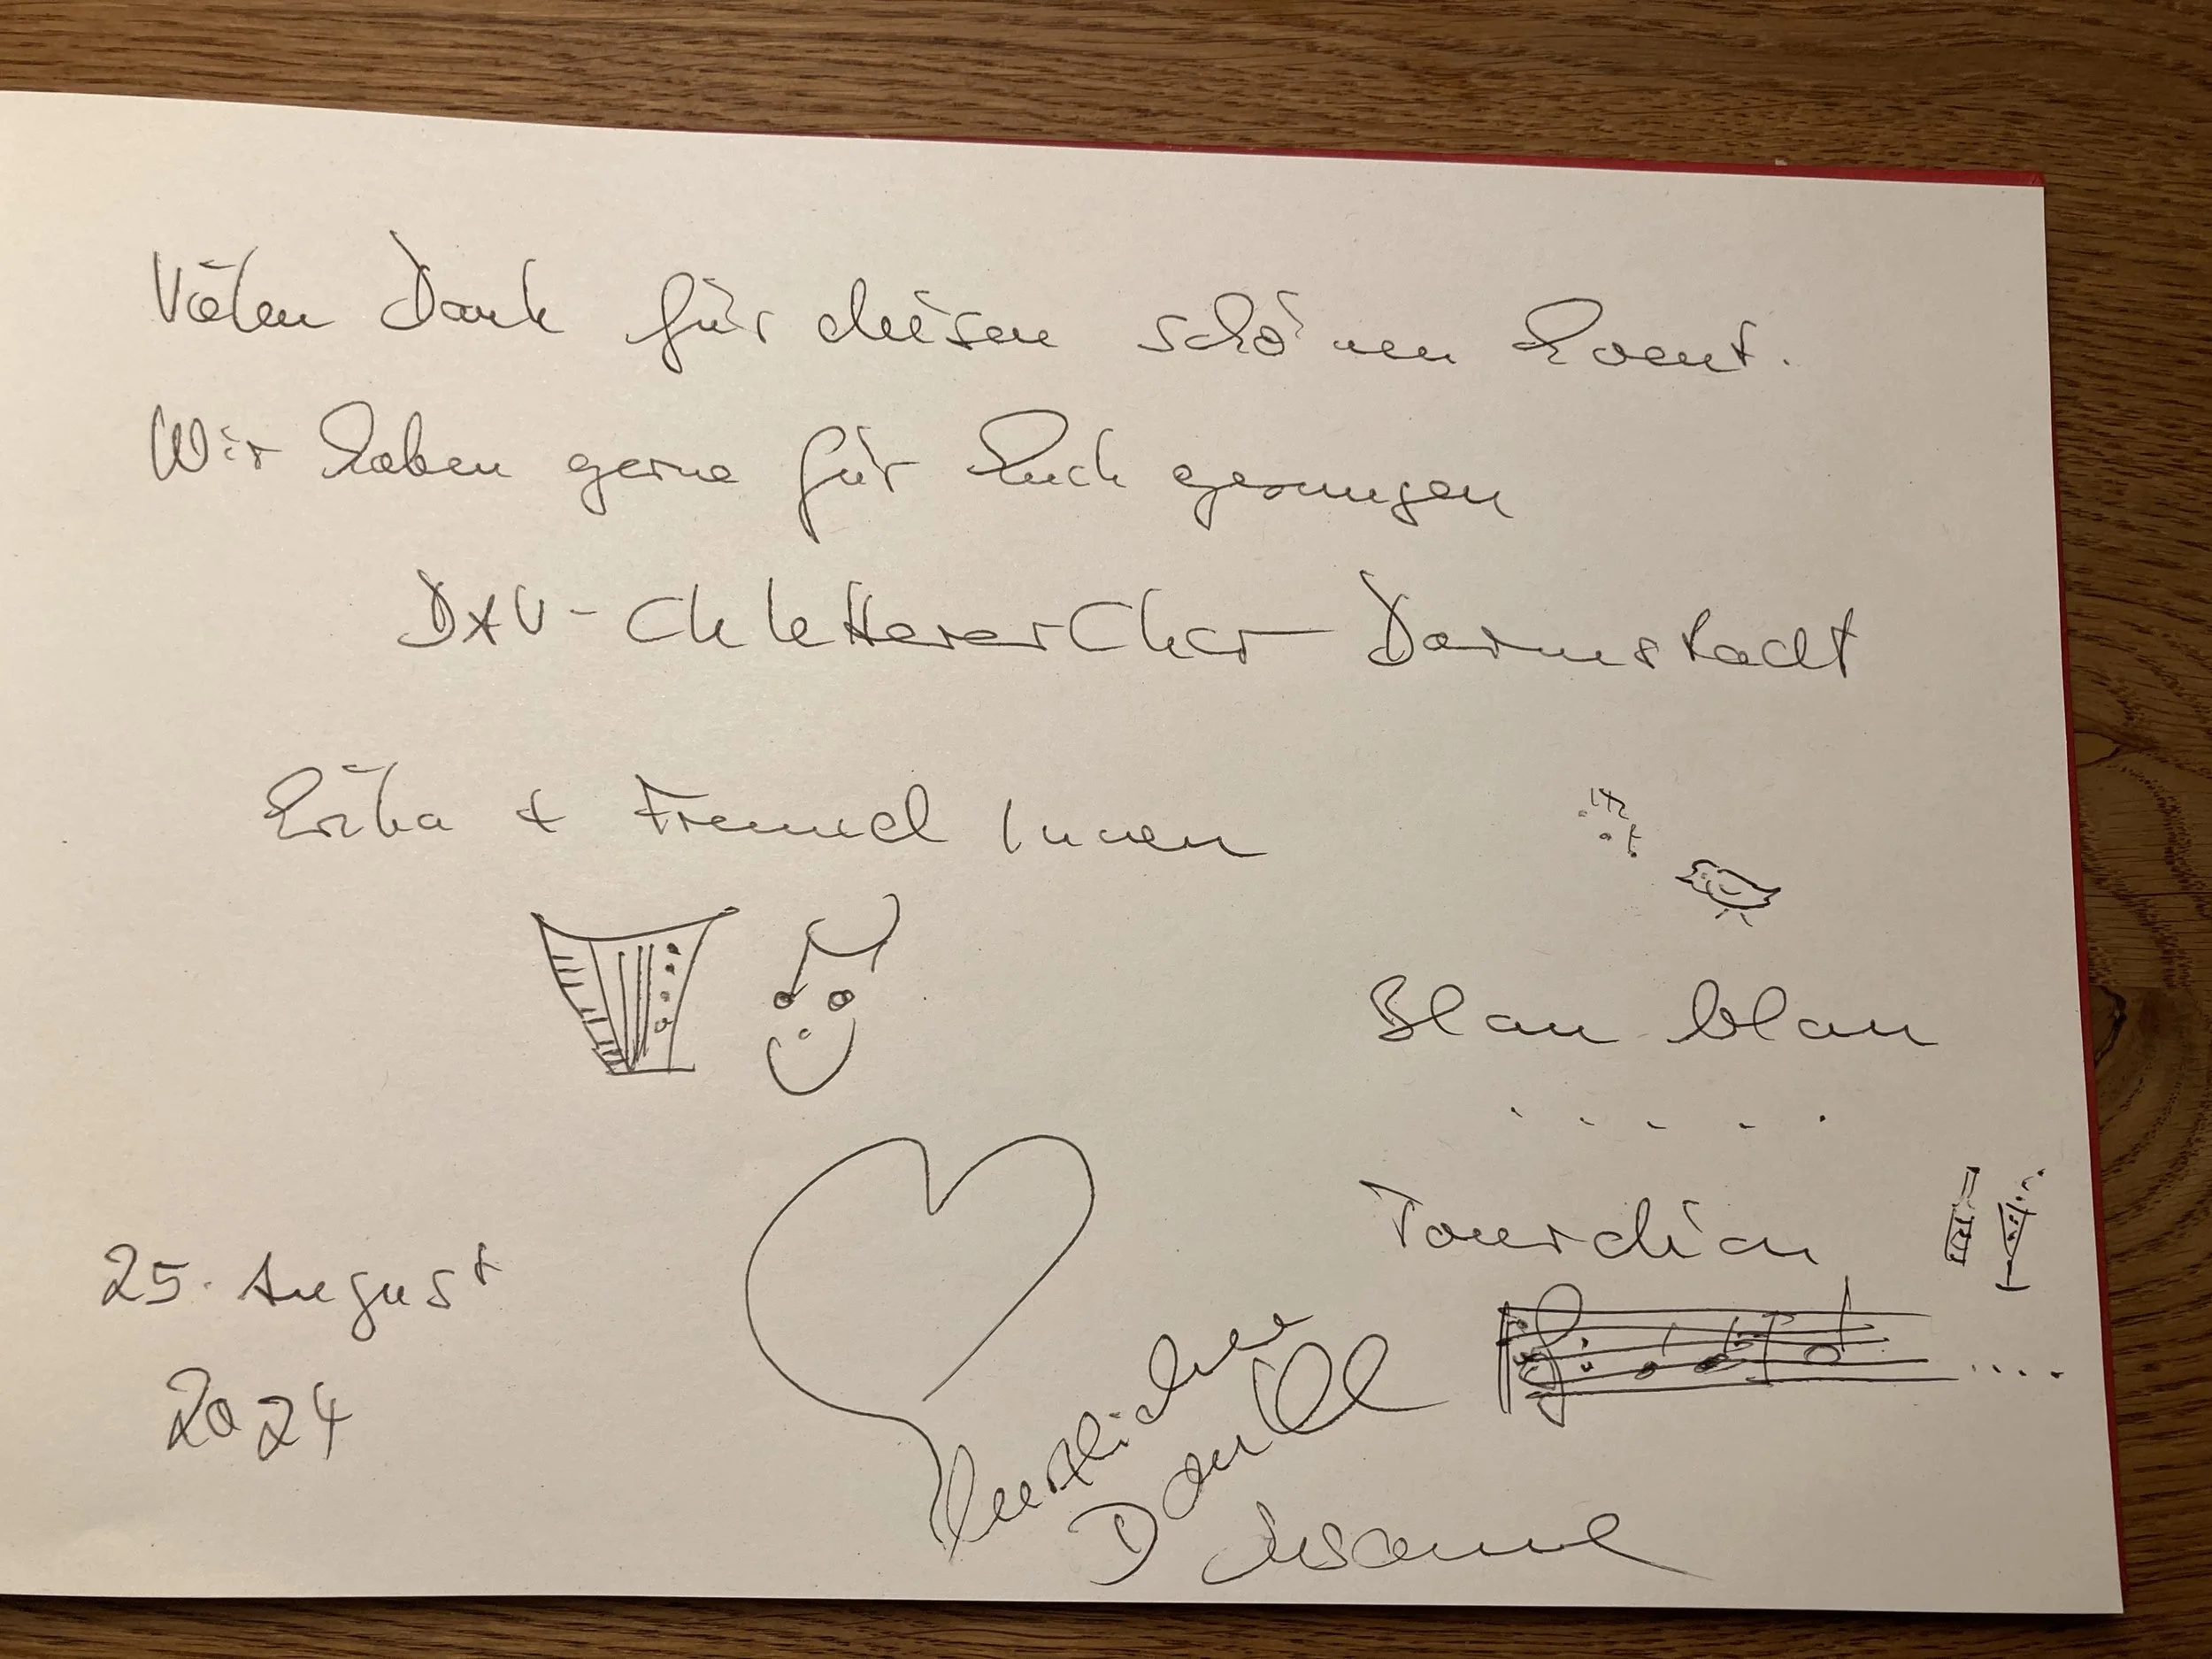 Vielen Dank für diesen schönen Event.
Wir haben gerne für Euch gesungen
DAV-ChlettererChor Darmstadt
Erika + Freund Innen
Blau blau
. . . . .
Tourdion
25. August
2024
Herzlichen
Dank
Susanne